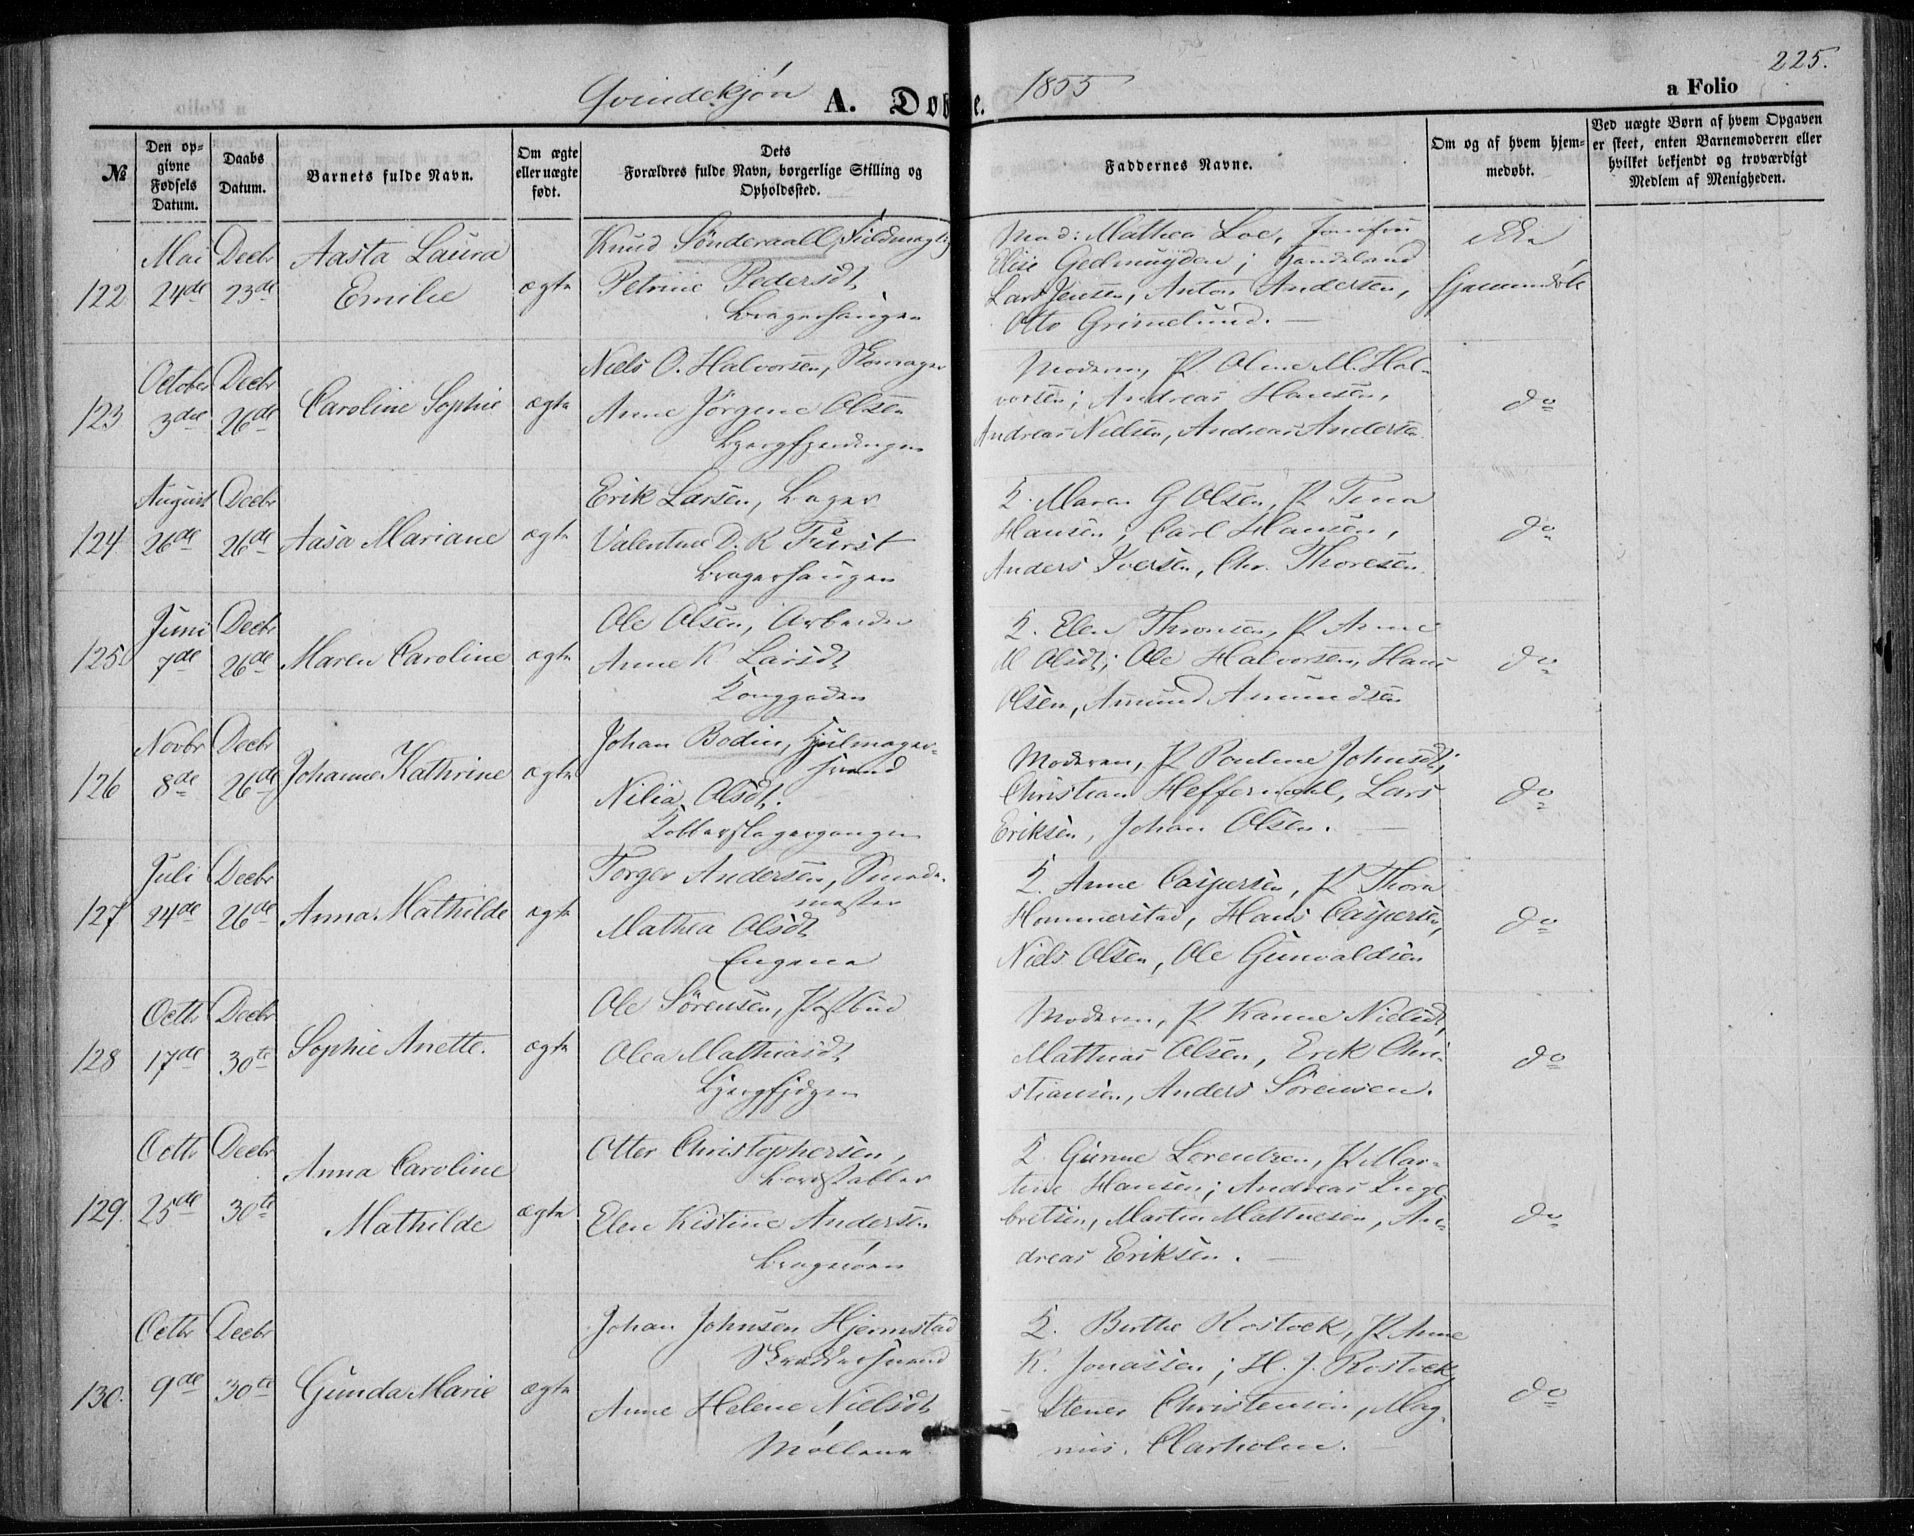 225.
Qvindekjøn A. Døbte. 1855 a Folio
№
Den op-
givne
Fødsels
Datum.
Daabs
Datum.
Barnets fulde Navn.
Om ægte
eller uægte
født.
Dets
Forældres fulde Navn, borgerlige Stilling og
Opholdssted.
Faddernes Navne.
Om og af hvem hjem-
medøbt.
Ved uægte Børn af hvem Opgaven
er skeet, enten Barnemoderen eller
hvilket bekjendt og troværdigt
Medlem af Menigheden.
122
Mai
24de
Decbr
23de
Aasta Laura
Emilie
ægte
Knud Sønderaall
Petrine Pedersdt
Mad: Mathea Loe, Jomfru
Elise
Lars Jensen, Anton Andersen,
Otto Grimelund. —
ikke
hjemmedøbt
123
October
3die
Decbr
26de
Caroline Sophie
ægte
Niels O. Halvorsen, Skomager
Anne Jørgine Olsen
Moderen, P Oline M. Hal-
vorsen; Andreas Hansen,
Andreas Nielsen, Andreas Andersen
do
124
August
26de
Decbr
26de
Aasa Mariane
ægte
Erik Larsen, Bager
Valentine D. K Fürst
K. Maren G Olsen, P Tina
Hansen, Carl Hansen,
Anders Iversen, Chr. Thoresen.
do
125
Juni
7de
Decbr
26de
Maren Caroline
ægte
Ole Olsen, Arbeider
Anne K. Larsdt
Konggaden
K. Elen Thronsen, P Anne
M Olsdt; Ole Halvorsen, Hans
Olsen, Amund Amundsen
do
126
Novbr
8de
Decbr
26de
Johanne Kathrine
ægte
Johan Bodin, Hjulmager-
svend
Nilia Olsdt.
Kobberslagergangen
Moderen, P Pouline Johnsdt;
Christian Heffermehl, Lars
Eriksen, Johan Olsen. —
do
127
Juli
24de
Decbr
26de
Anna Mathilde
ægte
Torger Andersen, Smede-
mester
Mathea Olsdt
Engene
K. Anne Caspersen, P Thora
Hammerstad, Hans Caspersen,
Niels Olsen, Ole Gunvaldsen
do
128
Octbr
17de
Decbr
30te
Sophie Anette.
ægte
Ole Sørensen, Postbud
Olea Mathiasdt
Moderen, P Karine Nielsdt,
Mathias Olsen, Erik Chri-
stiansen, Anders Sørensen.
do
129.
Octbr
25de
Decbr
30te
Anna Caroline
Mathilde
ægte
Otter Christophersen,
Bordstabler
Elen Kistine Andersen
Bragerøen
K. Gurine Lorentzen, P Mar-
tine Hansen; Andreas Inge-
bretsen, Martin Mathiesen, An-
dreas Eriksen. —
do
130.
Octbr
9de
Decbr
30te
Gunda Marie
ægte
Johan Johnsen Hjermstad
Skræddersvend
Anne Helene Nielsdt
Møllene
K. Birthe Rostock, P Anne
K. Jonassen; H. J. Rostock,
Stener Christensen, Mag-
nus. Clarholm.
do